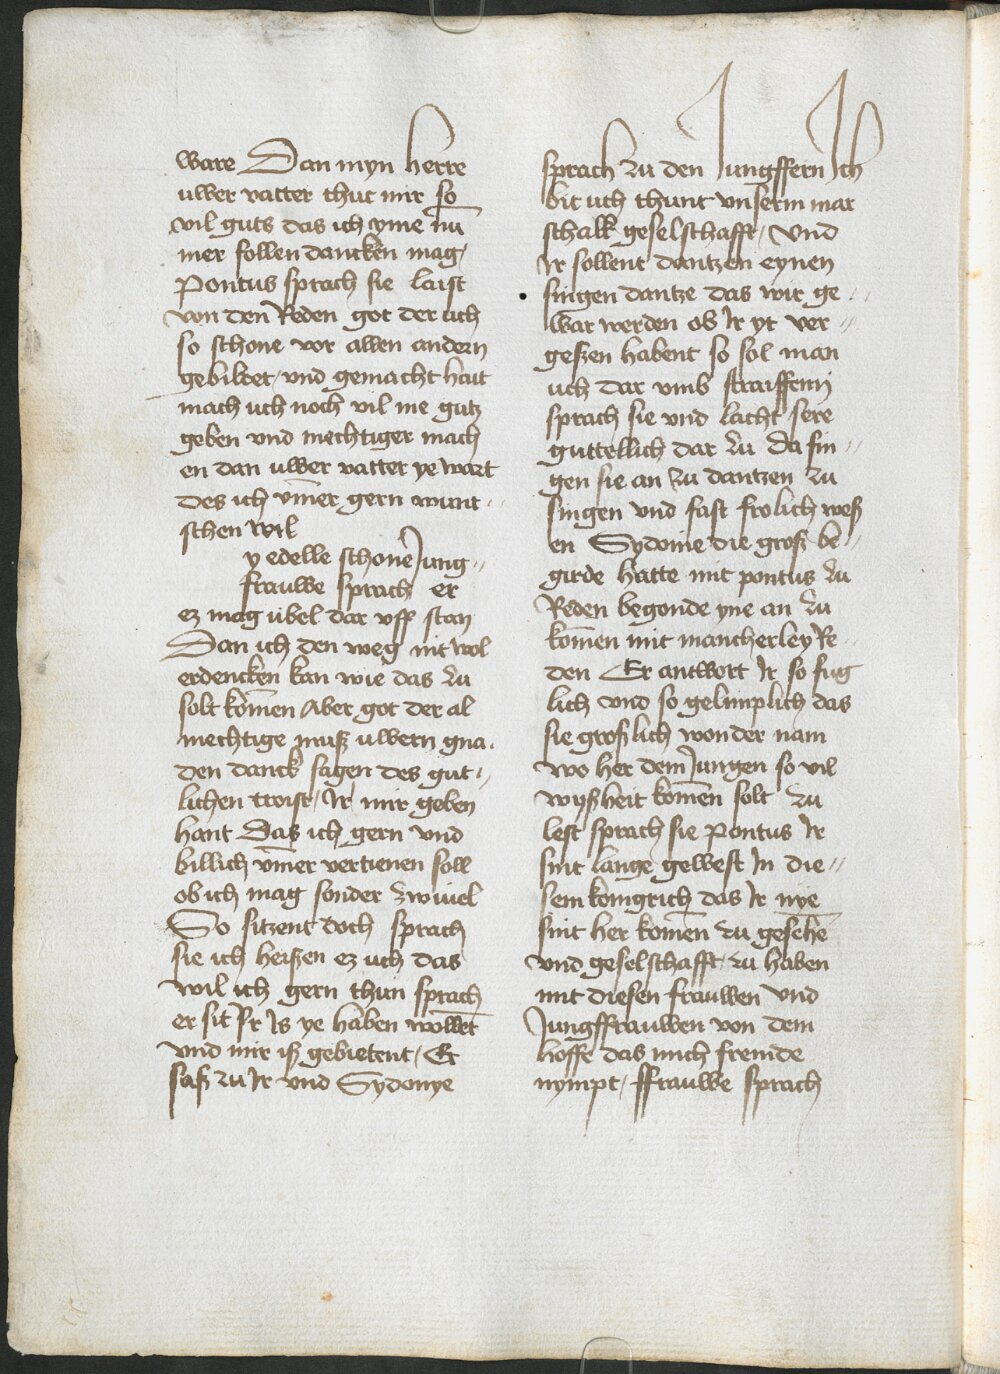 ware Dan myn herre
uwer vatter thut mir so
vil guts das ich yme nū
mer follen dancken mag,
Pontus sprach sie laist
von den Reden got der uch
so schone vor allen andern
gebildet, und gemacht hait
mach uch noch vil me gutz
geben und mechtiger mach
en dan uwer vatter ye wart
des ich vm̄er gern wunt
schen wil
y edelle schone Jung
frauwe sprach er
ez mag übel dar uff stan
Dan ich den weg nit wol
erdencken kan wie das zu
solt kōmen Aber got der al
mechtige muß uwern gna
den danck sagen des gut
lichen troist, Ir mir geben
hant Das ich gern und
billich vm̄er vertienen soll
ob ich mag sonder zwivel
So sitzent doch sprach
sie ich heißen ez uch das
wil ich gern thun sprach
er sit Ir Is ye haben wollēt
und mir iß gebietent, Er
saß zu Ir und Sydonye
sprach zu den Jungffern Ich
bit uch thunt unserm mar
schalk geselschafft, und
Ir sollent dantzen eynen
singen dantze das wir ge
war werden ob Ir yt ver
geßen habent so sol man
uch dar umb straiffenn
sprach sie und lacht sere
guttetlich dar zu da fin
gen sie an zu dantzen zu
singen und fast frolich weß
en Sydonie die groß be
girde hatte mit pontus zu
Reden begonde yne an zu
kōmen mit mancherley Re
den Er antwort Ir so fug
lich und so gelimplich das
sie großlich wonder nam
wo her dem Jungen so vil
wyßheit kōmen solt zu
lest sprach sie Pontus Ir
sint lange gewest In die
sem konigrich das Ir nye
sint her kōmen zu gesehē
und geselschafft, zu haben
mit diesen frauwen und
Jungffrauwen von dem
hoffe das mich fremde
nympt, ffrauwe sprach